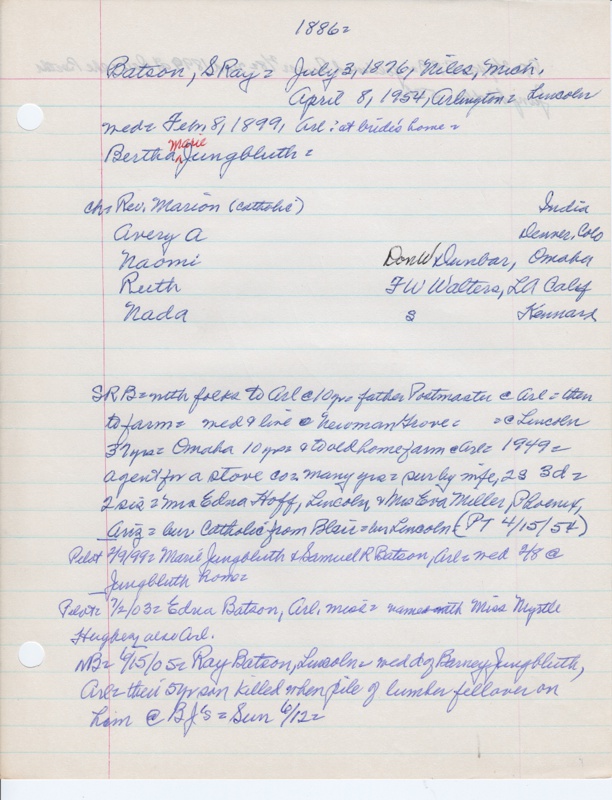 1886=
Batson, S Ray = July 3, 1876, Niles, Mich.
April 8, 1954, Arlington = Lincoln
med = Febr 8, 1899, Arl: at bride's home =
Bertha Marie Jungbluth =
ch: Rev. Marion (Catholic) India
Avery A Denver, Colo
Naomi Don W Dunbar, Omaha
Ruth FW Walters, LA Calif
Nada s Kennard
SRB = with folks to Arl @ 10 yrs father Postmaster @ Arl = then
to farm = med & live @ Newman Grove = = @ Lincoln
37 yrs = Omaha 10 yrs = & to old home farm @ Arl = 1949 =
agent for a stove co = many yrs = sur by wife, 2s 3d =
2 sis = Mrs Edna Hoff, Lincoln, & Mrs Eva Miller, Phoenix,
Ariz = bur. Catholic from Blair = bur Lincoln (PT 4/15/54)
Pilot 2/9/99 = Marie Jungbluth & Samuel R Batson, Arl = med 2/8 @
Jungbluth home =
Pilot = 7/2/03 = Edna Batson, Arl, miss = names with Miss Myrtle
Hughey, also Arl.
NB = 6/15/05 = Ray Batson, Lincoln = med d of Barney Jungbluth,
Arl = their 5 yr son killed when pile of lumber fell over on
him @ BJ's = Sun 6/12 =